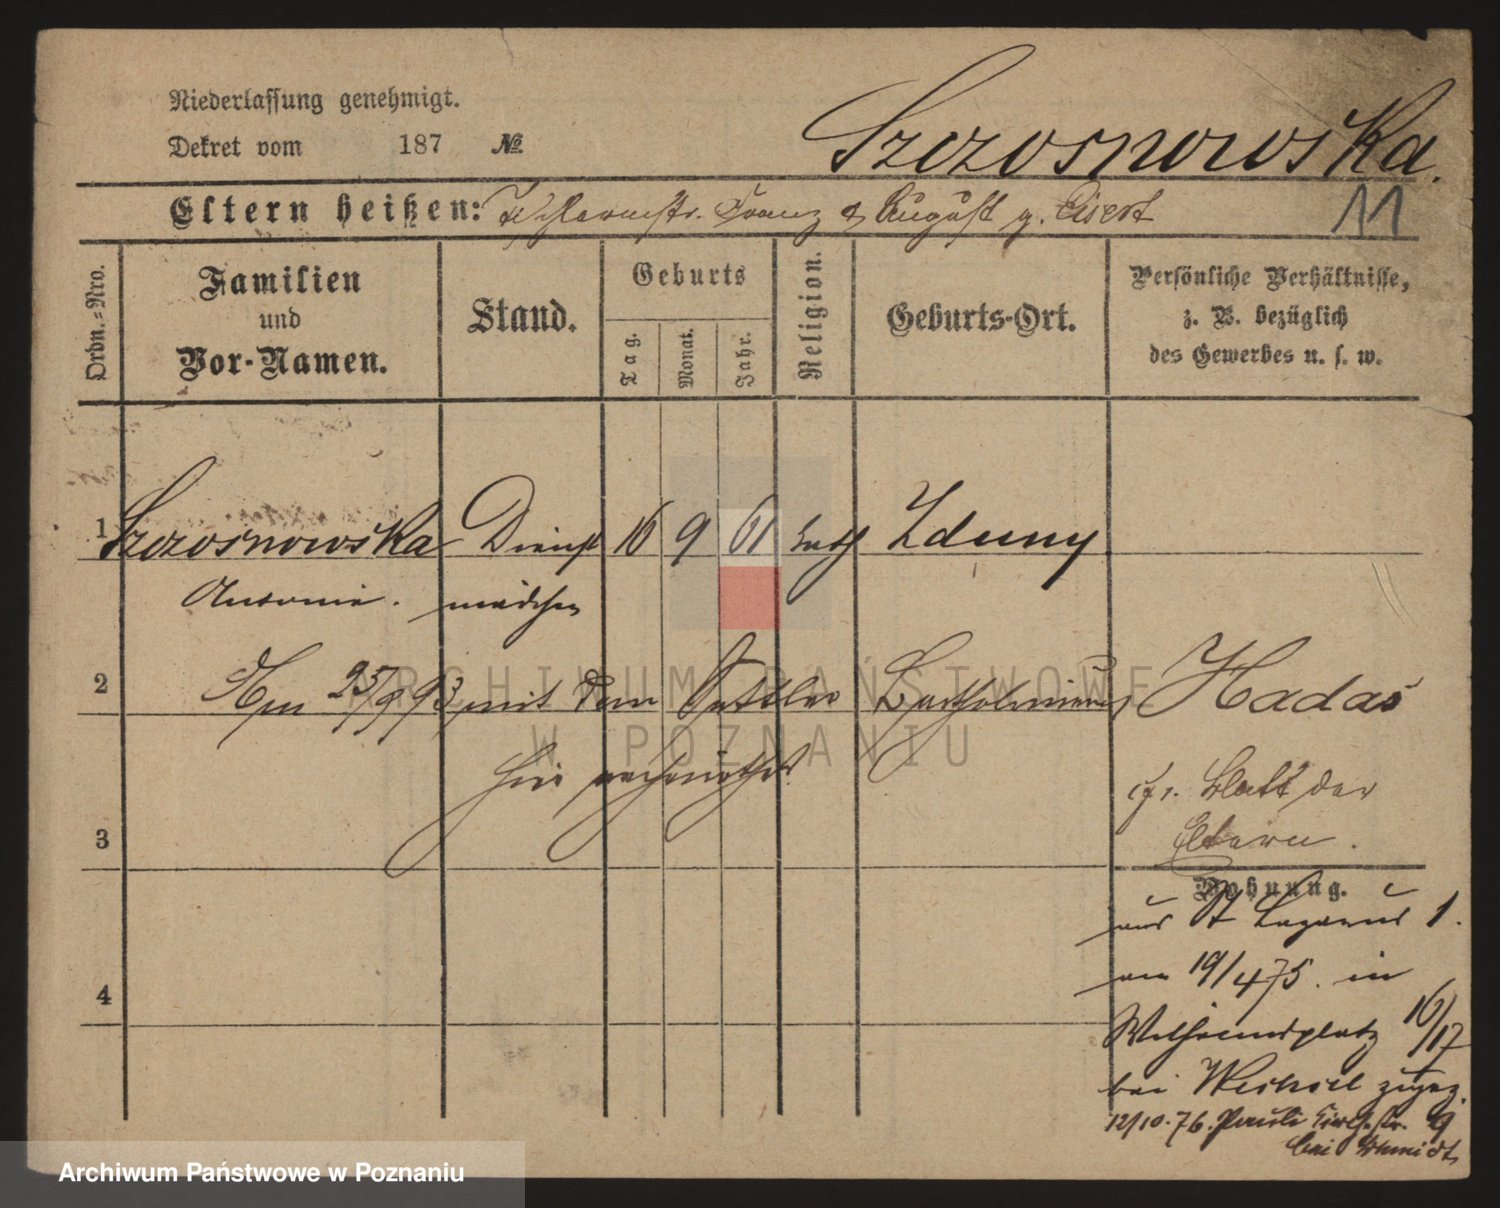 Niederlassung genehmigt.
Dekret vom 187 №
Szczosnowska.
Eltern heißen: Franz & August g. Eisert
11
Ordn.-Nro.
Familien
und
Vor-Namen.
Stand.
Geburts
Tag.
Monat.
Jahr.
Religion.
Geburts-Ort.
Persönliche Verhältnisse,
z. B. bezüglich
des Gewerbes u. s. w.
1 Szczosnowska Dienst 16 9 61 kath Zduny
Antonie. mädchen
2 Am 25/9 93 mit dem Sattler Bartholomäus Hadas
hier verheirathet
cfr. Blatt der
Eltern.
3
Wohnung.
aus St Lazarus 1.
am 19/4 75. in
4
Wilhelmsplatz 16/17
bei zugez.
12/10.76. Pauli Kirchstr. 9
bei Schmidt
ARCHIWUM PAŃSTWOWE
W POZNANIU
Archiwum Państwowe w Poznaniu